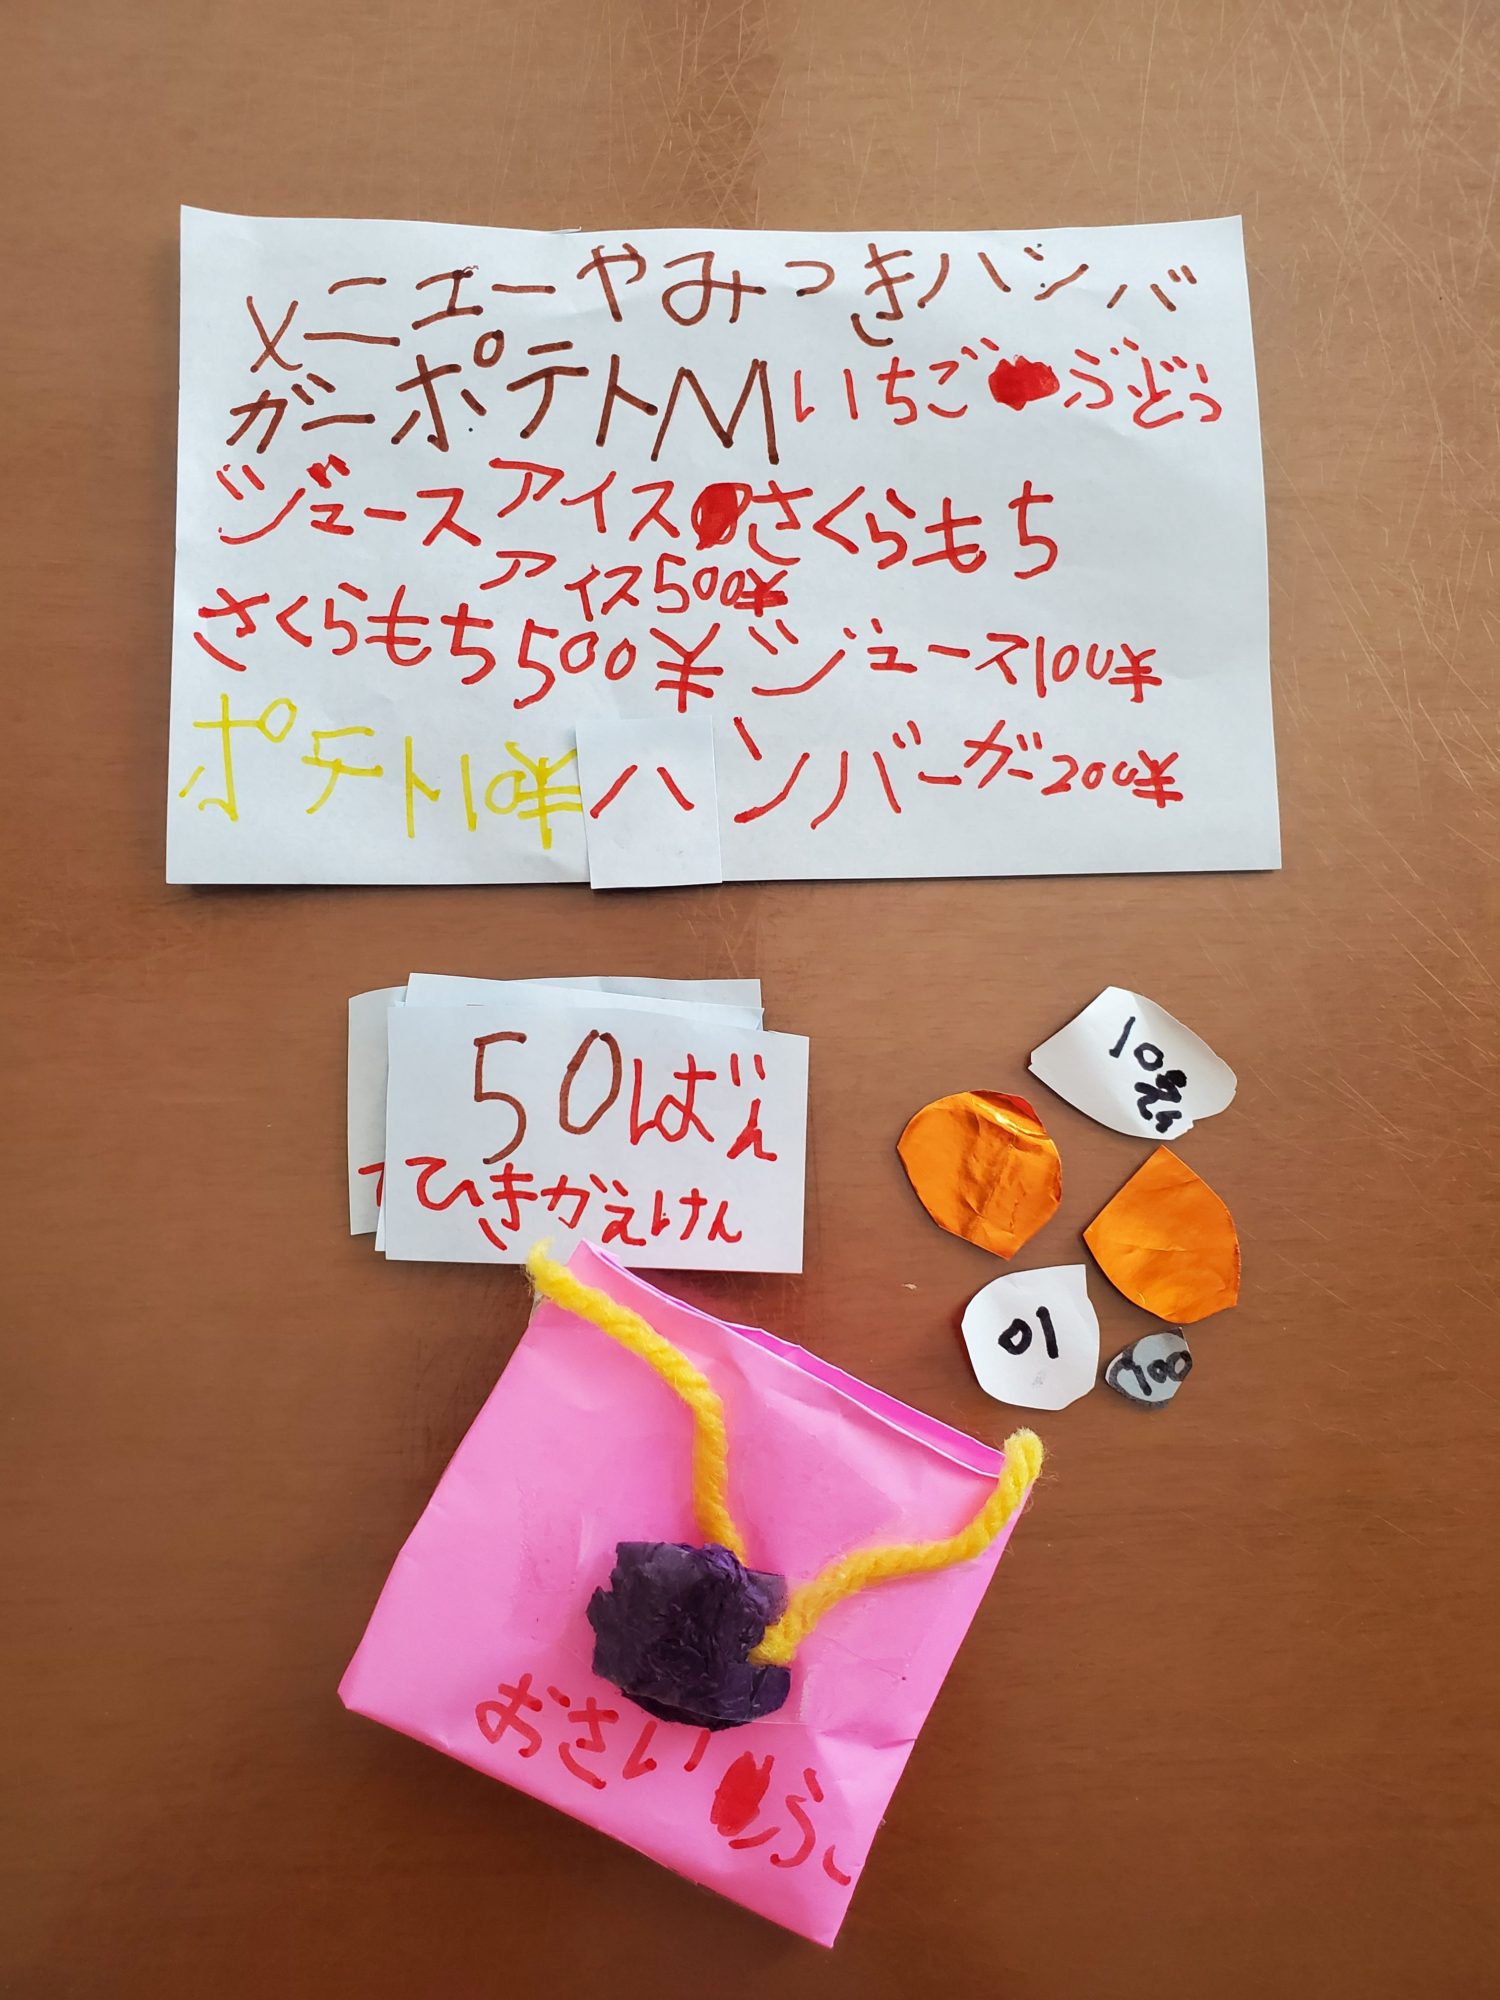 メニューやみつきハンバ
ガーポテトMいちごぶどう
ジュースアイスさくらもち
アイス500¥
さくらもち500¥ジュース100¥
ポテト10¥ハンバーガー200¥
50ばん
ひきかえけん
10えん
01
100
おさいふ